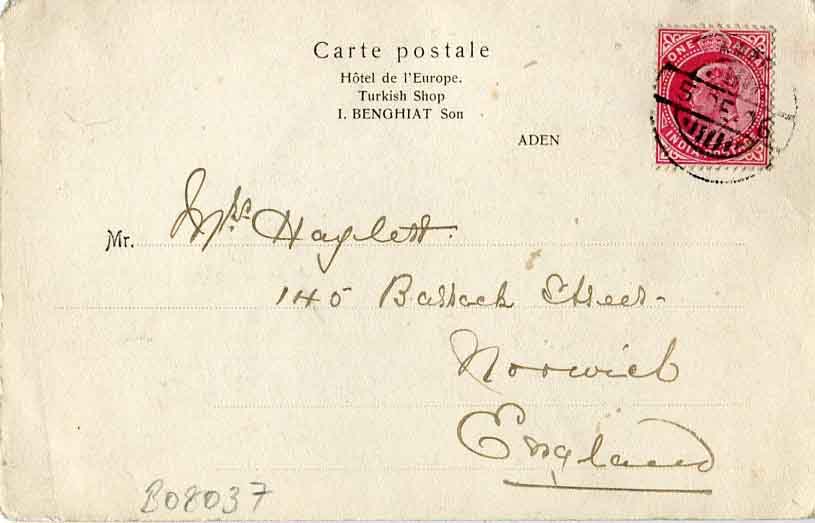 Carte postale
Hôtel de l'Europe.
Turkish Shop
I. BENGHIAT Son
ADEN
ONE
INDIA
Mr. Mrs Haylett.
145 Barrack Street
Norwich
England
B08037